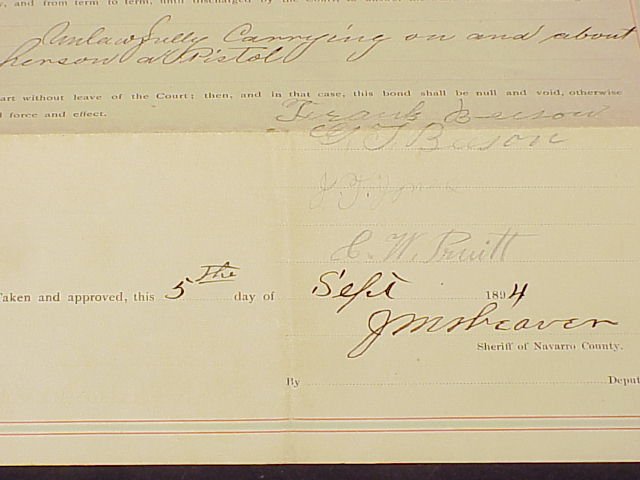 , and from term to term, until discharged by the Court, to answer
Unlawfully Carrying on and about
person a Pistol
art without leave of the Court; then, and in that case, this bond shall be null and void, otherwise
l force and effect.
Frank Beeson
G. T. Beeson
J. T. Jones
C. W. Pruitt
Taken and approved, this 5 The day of Sept 1894
J M Weaver
Sheriff of Navarro County.
By Deput